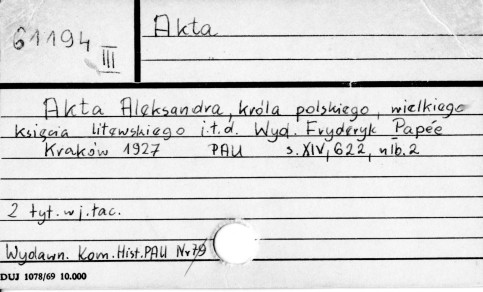 61194
III
Akta
Akta Aleksandra, króla polskiego, wielkiego
księcia litewskiego i.t.d. Wyd. Fryderyk Papée
Kraków 1927 PAU s. XIV, 622, nlb. 2
2 tyt. w j. łac.
Wydawn. Kom. Hist. PAU Nr 79
DUJ 1078/69 10.000